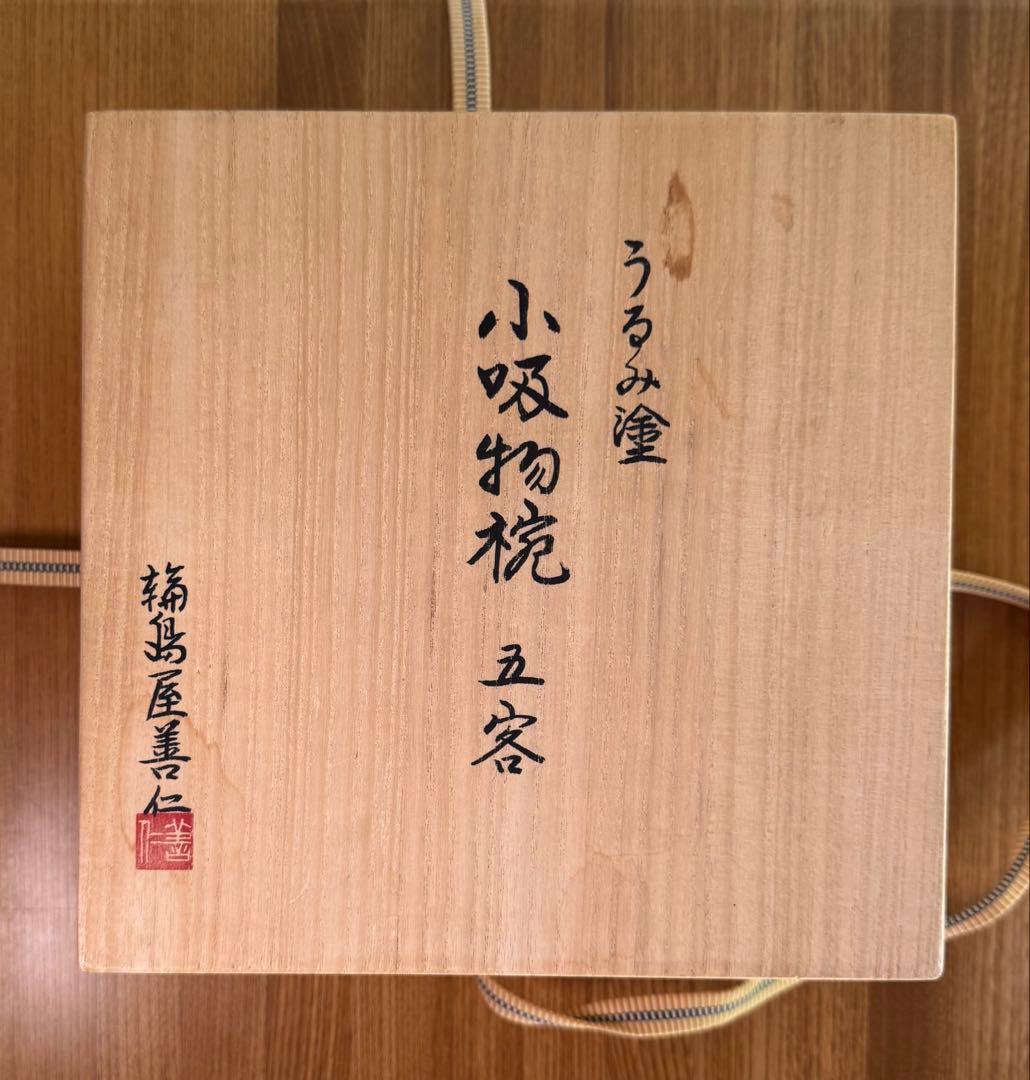 うるみ塗
小吸物椀 五客
輪島屋善仁
善仁